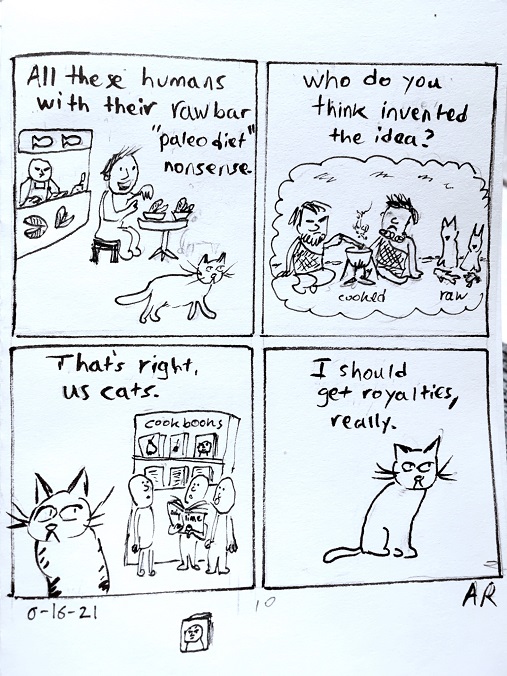 All these humans
with their raw bar
"paleo diet"
nonsense.
who do you
think invented
the idea?
cooked
raw
That's right,
us cats.
cookboons
I should
get royalties,
really.
AR
6-16-21
10